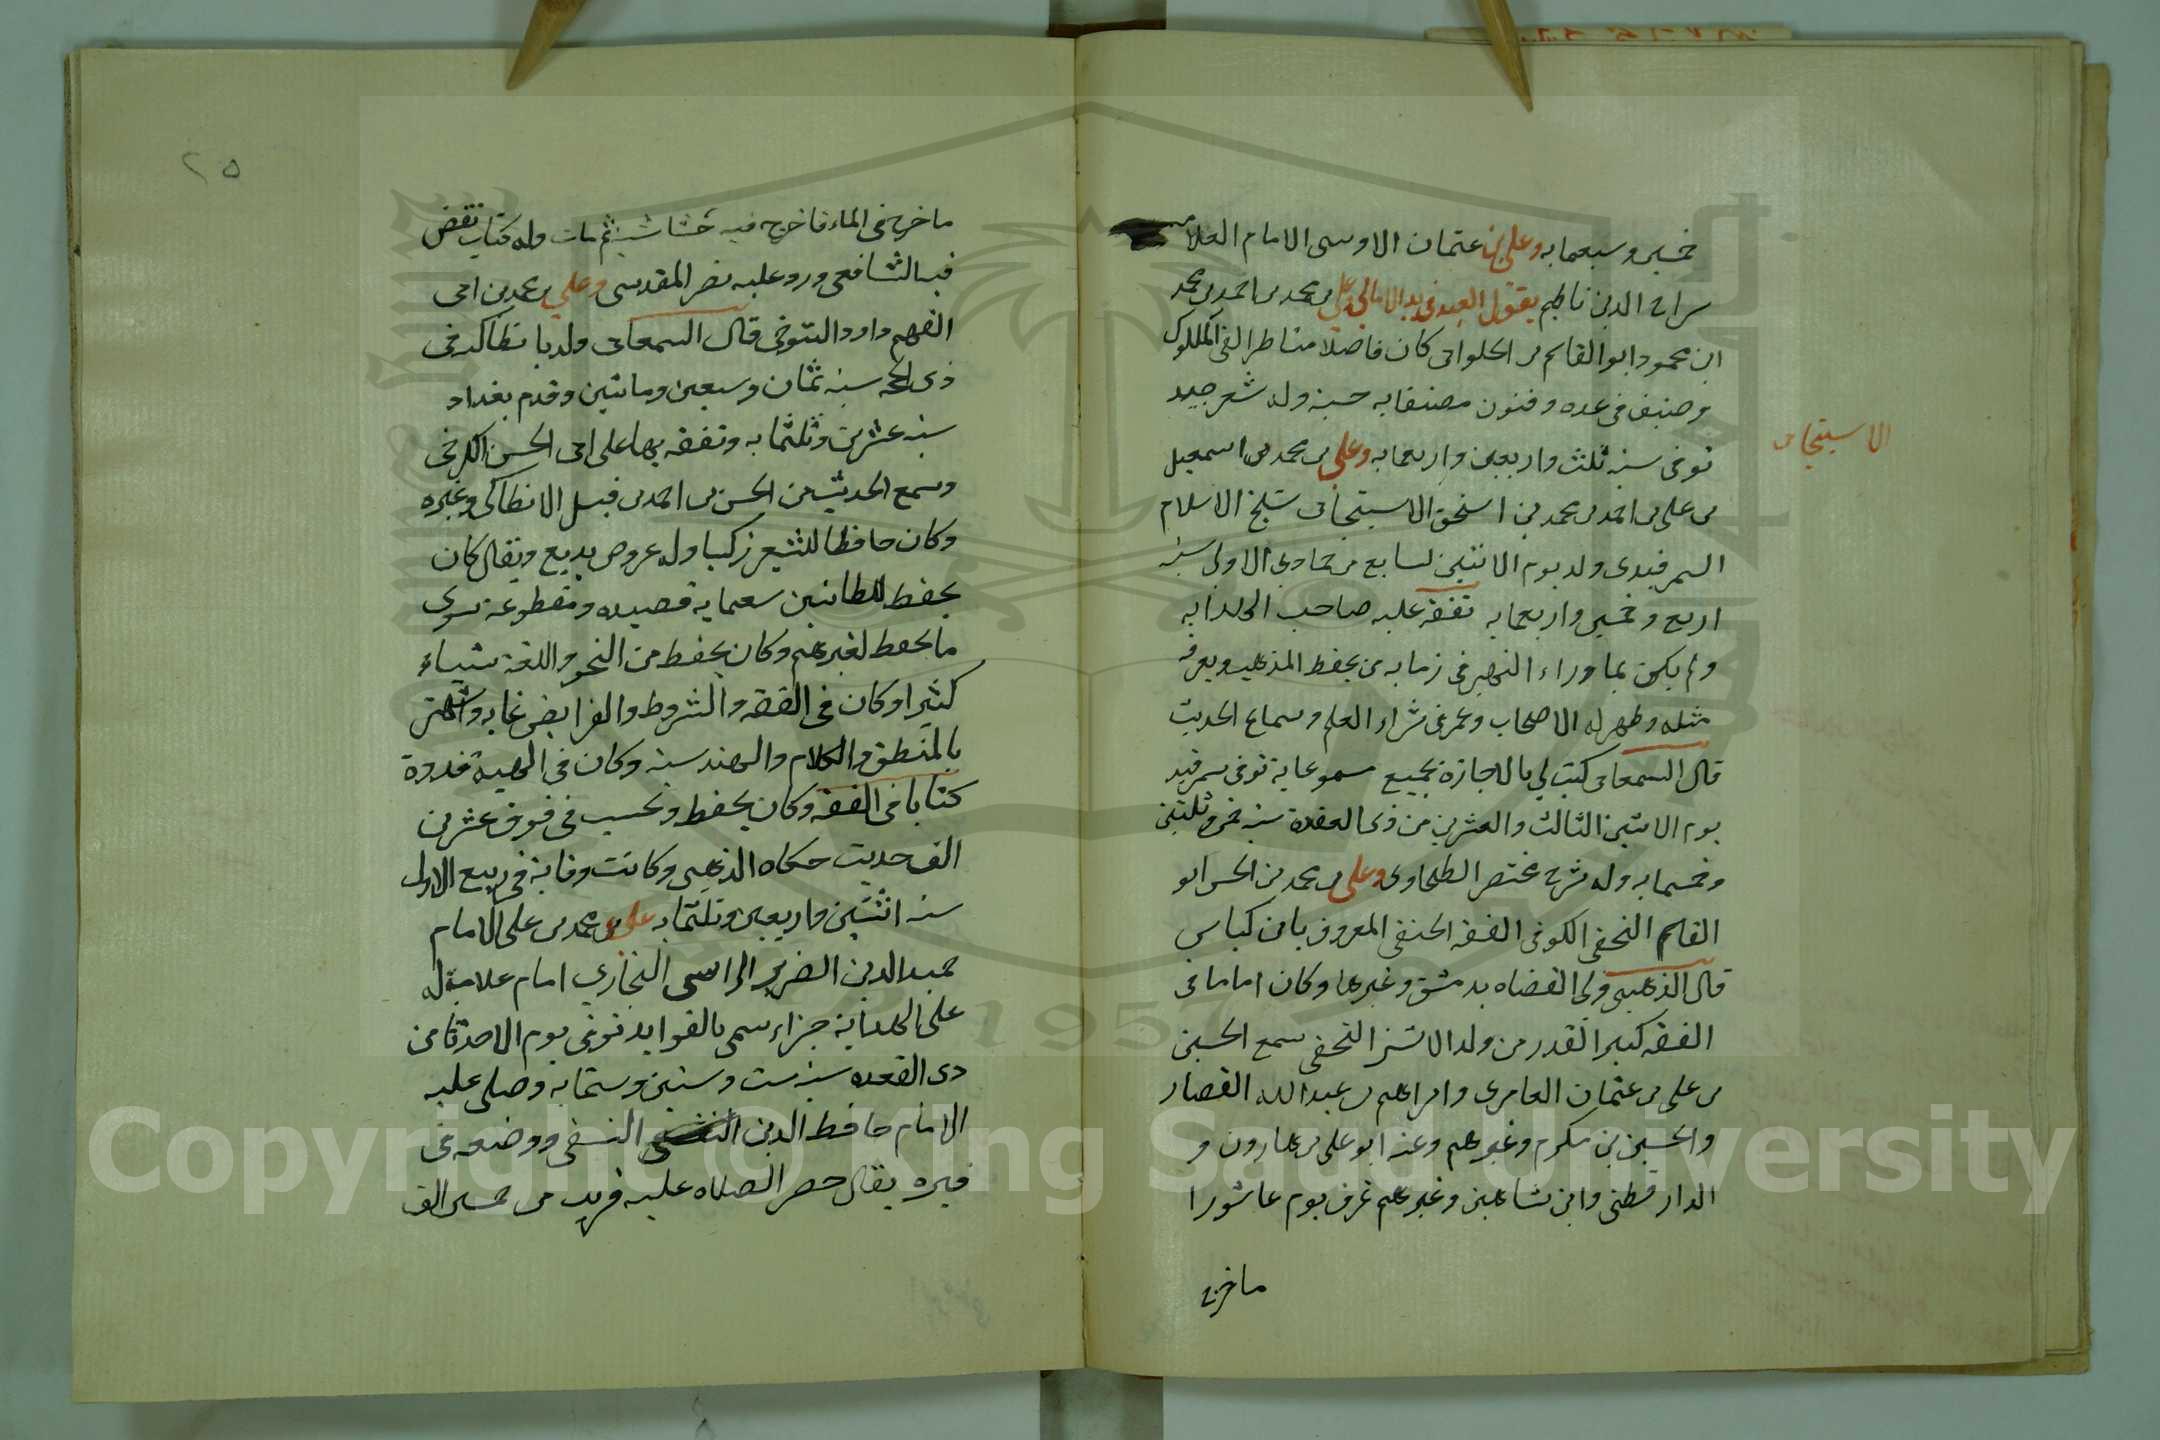 خمسين وسبعمايه وعلي بن عثمان الاوسى الامام العلامه
سراج الدين ناظم يقول العبد فى بدا الامالى وعلى بن محمد بن احمد بن محمد
ابن محمود ابو القاسم بن الحلوانى كان فاضلا مناظرا لقى الملوك
وصنف فى عده وفنون مصنفايه حسنه وله شعر جيد
توفى سنه ثلث واربعين واربعمايه وعلى بن محمد بن اسمعيل
الاسبتيجابى
بن على بن احمد بن محمد بن اسحق الاسبتيجابى شيخ الاسلام
السمرقندى ولد يوم الاثنين لسابع من جمادى الاولى سنه
اربع وخمسين واربعمايه تفقه عليه صاحب الهدايه
ولم يكن بما وراء النهر فى زمانه من يحفظ المذهب ويعرفه
مثله وظهر له الاصحاب وعمر فى شراء العلم وسماع الحديث
قال السمعانى كتب لي بالاجازة بجميع مسموعاته توفى بسمرقند
يوم الاثنين الثالث والعشرين من ذى القعدة سنه خمس وثلثين
وخمسمايه وله شرح مختصر الطحاوى وعلى بن محمد بن الحسن ابو
القاسم النخعى الكوفى الفقه الحنفى المعروف بابن كباس
قال الذهبى ولى القضاه بدمشق وغيرها وكان اماما فى
الفقه كبير القدر من ولد الاشتر النخعى سمع الحسن
بن على بن عثمان العامرى وابراهيم بن عبد الله القصار
والحسين بن مكرم وغيرهم وعنه ابو على بن هارون و
الدارقطنى وابن شاهين وغيرهم غرق يوم عاشورا
ماخرج
٢٥
ماخرج فى الماء فاخرج فيه حشاشة ثم مات وله كتاب نقض
فيه الشافعى ورد عليه نصر المقدسى وعلي بن محمد بن ابى
الفهم داود التنوخى قال السمعانى ولد بانطاكيه فى
ذى الحجه سنه ثمان وسبعين ومايتين وقدم بغداد
سنه عشرين وثلثمايه وتفقه بها على ابى الحسن الكرخى
وسمع الحديث من الحسن بن احمد بن فيل الانطاكى وغيره
وكان حافظا للشعر زكيا وله عروض بديع ويقال كان
يحفظ للطائيين سعمايه قصيده ومقطوعة سوى
ما يحفظ لغيرهم وكان يحفظ من النحو واللغة شياء
كثيرا وكان فى الفقه والشروط والفرايض غايه واشتهر
بالمنطق والكلام والهندسه وكان فى الهيية قدوة
كتابا فى الفقه وكان يحفظ وحسب فى فوق عشرين
الف حديث حكاه الذهبى وكانت وفاته فى ربيع الاول
سنه اثنتين واربعين وثلثمايه على بن محمد بن على الامام
حميد الدين الضرير الراسى البخارى امام علامة له
على الهداية جزاء سمى بالفوايد توفى يوم الاحد ثامن
ذى القعده سنه ست وستين وستمايه وصلى عليه
الامام حافظ الدين النسفى ووضعه فى
قبره يقال حضر الصلاه عليه قريب من خمسين الف
1957
Copyright © King Saud University